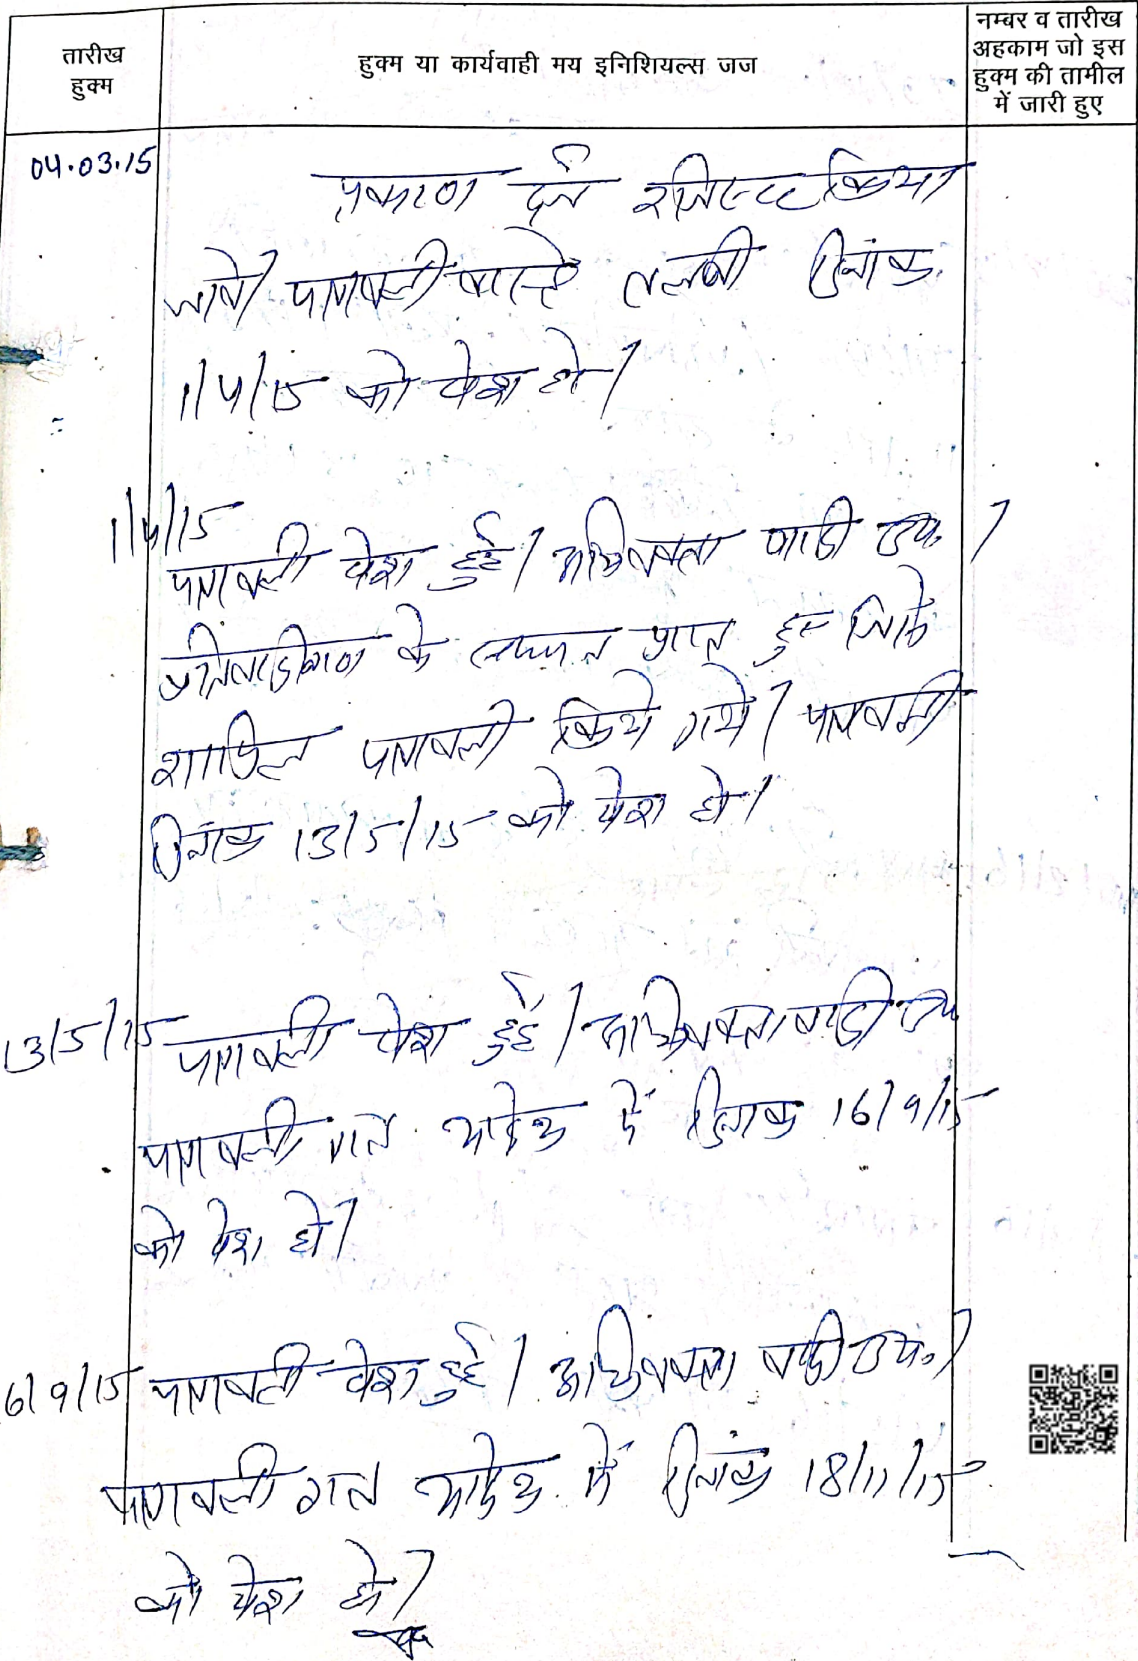 तारीख
हुक्म
हुक्म या कार्यवाही मय इनिशियल्स जज
नम्बर व तारीख
अहकाम जो इस
हुक्म की तामील
में जारी हुए
04.03.15
प्रकरण दर्ज रजिस्टर किया
जावे। पत्रावली वास्ते तलबी दिनांक
1/4/15 को पेश हो।
1/4/15
पत्रावली पेश हुई। अभिवक्ता वादी उप.।
प्रतिवादीगण के सम्मन प्राप्त हुए जिसे
शामिल पत्रावली किये गये। पत्रावली
दिनांक 13/5/15 को पेश हो।
13/5/15 पत्रावली पेश हुई। अभिवक्ता वादी उप
पत्रावली गत आदेश में दिनांक 16/9/15
को पेश हो।
6/9/15 पत्रावली पेश हुई। अभिवक्ता वादी उप.।
पत्रावली गत आदेश में दिनांक 18/11/15
को पेश हो।